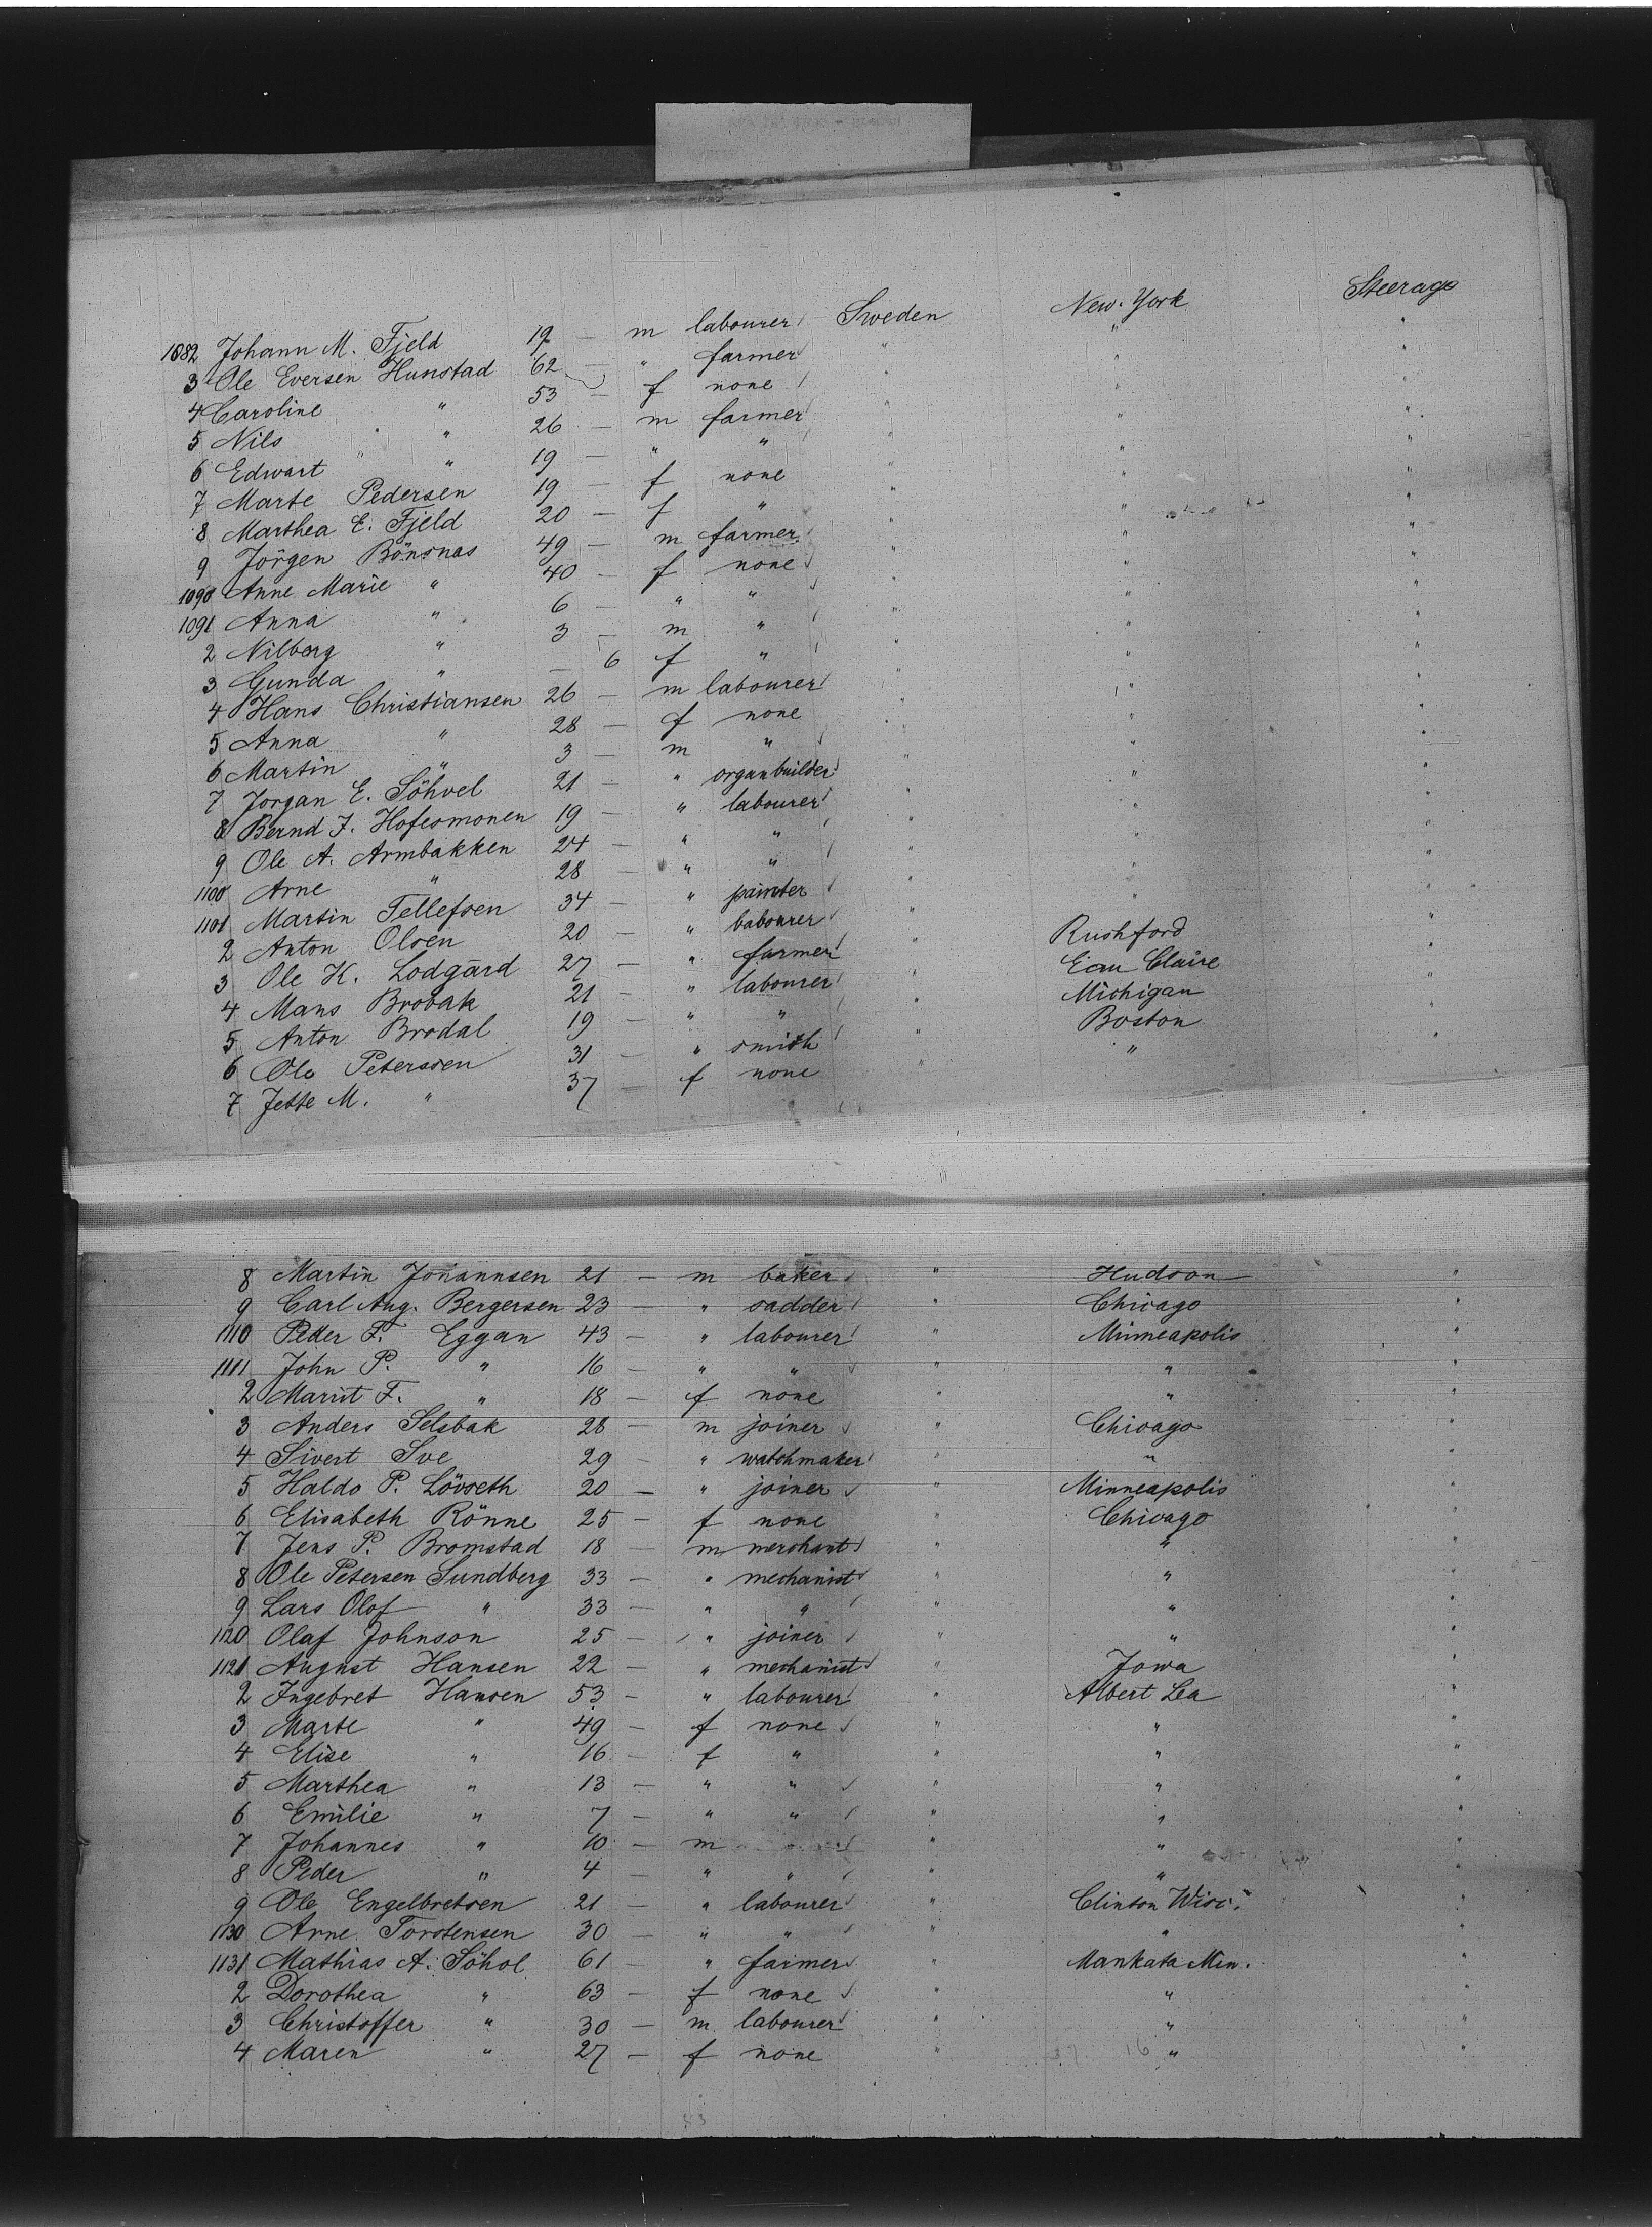 1082 Johann M. Fjeld 19 — m labourer Sweden New-York Steerage
3 Ole Eversen Hunstad 62 — " farmer " " "
4 Caroline " 53 — f none " " "
5 Nils " 26 — m farmer " " "
6 Edwart " 19 — " " " " "
7 Marte Pedersen 19 — f none " " "
8 Marthea E. Fjeld 20 — f " " " "
9 Jörgen Bönsnas 49 — m farmer " " "
1090 Anne Marie " 40 — f none " " "
1091 Anna " 6 — " " " " "
2 Nilberg " 3 — m " " " "
3 Gunda " — 6 f " " " "
4 Hans Christiansen 26 — m labourer " " "
5 Anna " 28 — f none " " "
6 Martin " 3 — m " " " "
7 Jorgan E. Söhvel 21 — " organbuilder " " "
8 Bernd J. Hofesmonen 19 — " labourer " " "
9 Ole A. Armbakken 24 — " " " " "
1100 Arne " 28 — " " " " "
1101 Martin Tellefsen 34 — " painter " " "
2 Anton Olsen 20 — " babourer " Rushford "
3 Ole K. Lodgård 27 — " farmer " Eau Claire "
4 Mans Brobak 21 — " labourer " Michigan "
5 Anton Brodal 19 — " " " Boston "
6 Ole Peterssen 31 — " smith " " "
7 Jette M. " 37 — f none
8 Martin Johannsen 21 — m baker " Hudson "
9 Carl Aug. Bergersen 23 — " sadder " Chicago "
1110 Peder F. Eggan 43 — " labourer " Minneapolis "
1111 John P. " 16 — " " " " "
2 Marrit F. " 18 — f none " " "
3 Anders Selsbak 28 — m joiner " Chicago "
4 Sivert Sve 29 — " watchmaker " " "
5 Haldo P. Lövseth 20 — " joiner " Minneapolis "
6 Elisabeth Rönne 25 — f none " Chicago "
7 Jens P. Bromstad 18 — m merchant " " "
8 Ole Petersen Sundberg 33 — " mechanist " " "
9 Lars Olof " 33 — " " " " "
1120 Olaf Johnson 25 — " joiner " " "
1121 August Hansen 22 — " mechanist " Jowa "
2 Ingebret Hansen 53 — " labourer " Albert Lea "
3 Marte " 49 — f none " " "
4 Elise " 16 — f " " " "
5 Marthea " 13 — " " " " "
6 Emilie " 7 — " " " " "
7 Johannes " 10 — m " " " "
8 Peder " 4 — " " " " "
9 Ole Engelbretsen 21 — " labourer " Clinton Wisc. "
1130 Arne Torstensen 30 — " " " " "
1131 Mathias A. Söhol 61 — " farmer " Mankata Min. "
2 Dorothea " 63 — f none " " "
3 Christoffer " 30 — m labourer " " "
4 Maren " 27 — f none " " "